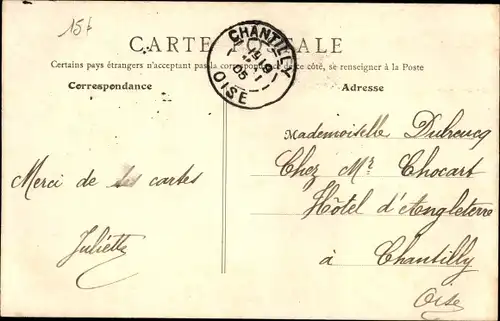 15f
CARTE POSTALE
Certains pays étrangers n'acceptant pas la correspondance de ce côté, se renseigner à la Poste
Correspondance
Adresse
CHANTILLY
05
OISE
Mademoiselle Dubreucq
Chez Mr Chocart
Hôtel d'Angleterre
à Chantilly
Oise
Merci de tes cartes
Juliette